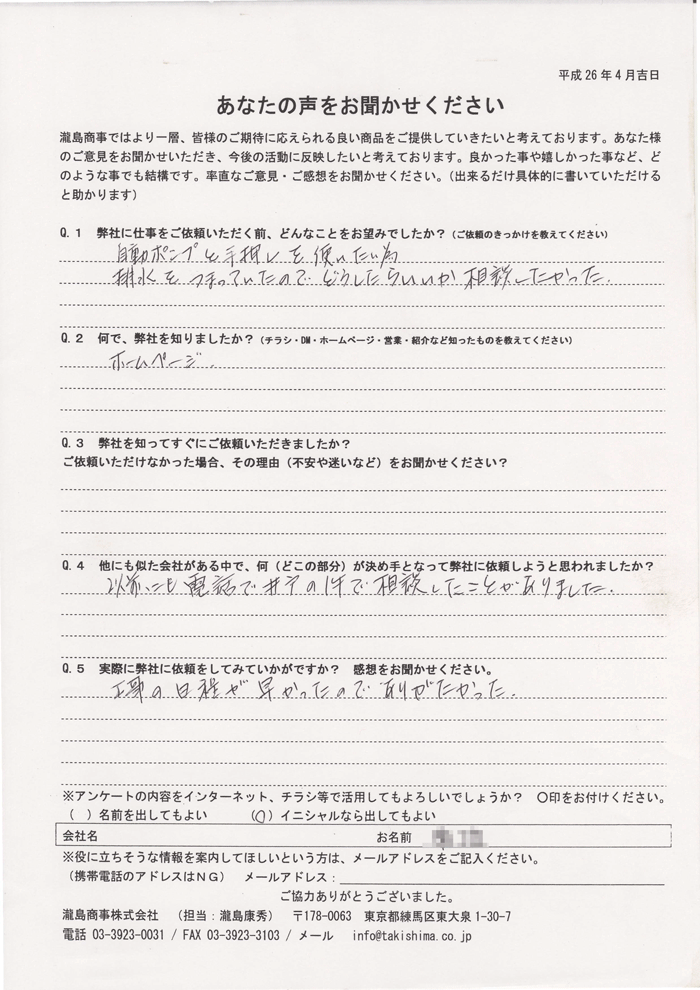 平成26年4月吉日
あなたの声をお聞かせください
瀧島商事ではより一層、皆様のご期待に応えられる良い商品をご提供していきたいと考えております。あなた様
のご意見をお聞かせいただき、今後の活動に反映したいと考えております。良かった事や嬉しかった事など、ど
のような事でも結構です。率直なご意見・ご感想をお聞かせください。（出来るだけ具体的に書いていただける
と助かります）
Q.1 弊社に仕事をご依頼いただく前、どんなことをお望みでしたか？（ご依頼のきっかけを教えてください）
自動ポンプと手押しを使いたい為
排水をつまっていたのでどうしたらいいか相談したかった.
Q.2 何で、弊社を知りましたか？（チラシ・DM・ホームページ・営業・紹介など知ったものを教えてください）
ホームページ.
Q.3 弊社を知ってすぐにご依頼いただきましたか？
ご依頼いただけなかった場合、その理由（不安や迷いなど）をお聞かせください？
Q.4 他にも似た会社がある中で、何（どこの部分）が決め手となって弊社に依頼しようと思われましたか？
以前にも電話で井戸の件で相談したことがありました.
Q.5 実際に弊社に依頼をしてみていかがですか？ 感想をお聞かせください。
工事の日程が早かったのでありがたかった.
※アンケートの内容をインターネット、チラシ等で活用してもよろしいでしょうか？ 〇印をお付けください。
（ ）名前を出してもよい （〇）イニシャルなら出してもよい
会社名 お名前
※役に立ちそうな情報を案内してほしいという方は、メールアドレスをご記入ください。
（携帯電話のアドレスはＮＧ） メールアドレス：
ご協力ありがとうございました。
瀧島商事株式会社 （担当：瀧島康秀） 〒178-0063 東京都練馬区東大泉1-30-7
電話 03-3923-0031 / FAX 03-3923-3103 / メール info@takishima.co.jp